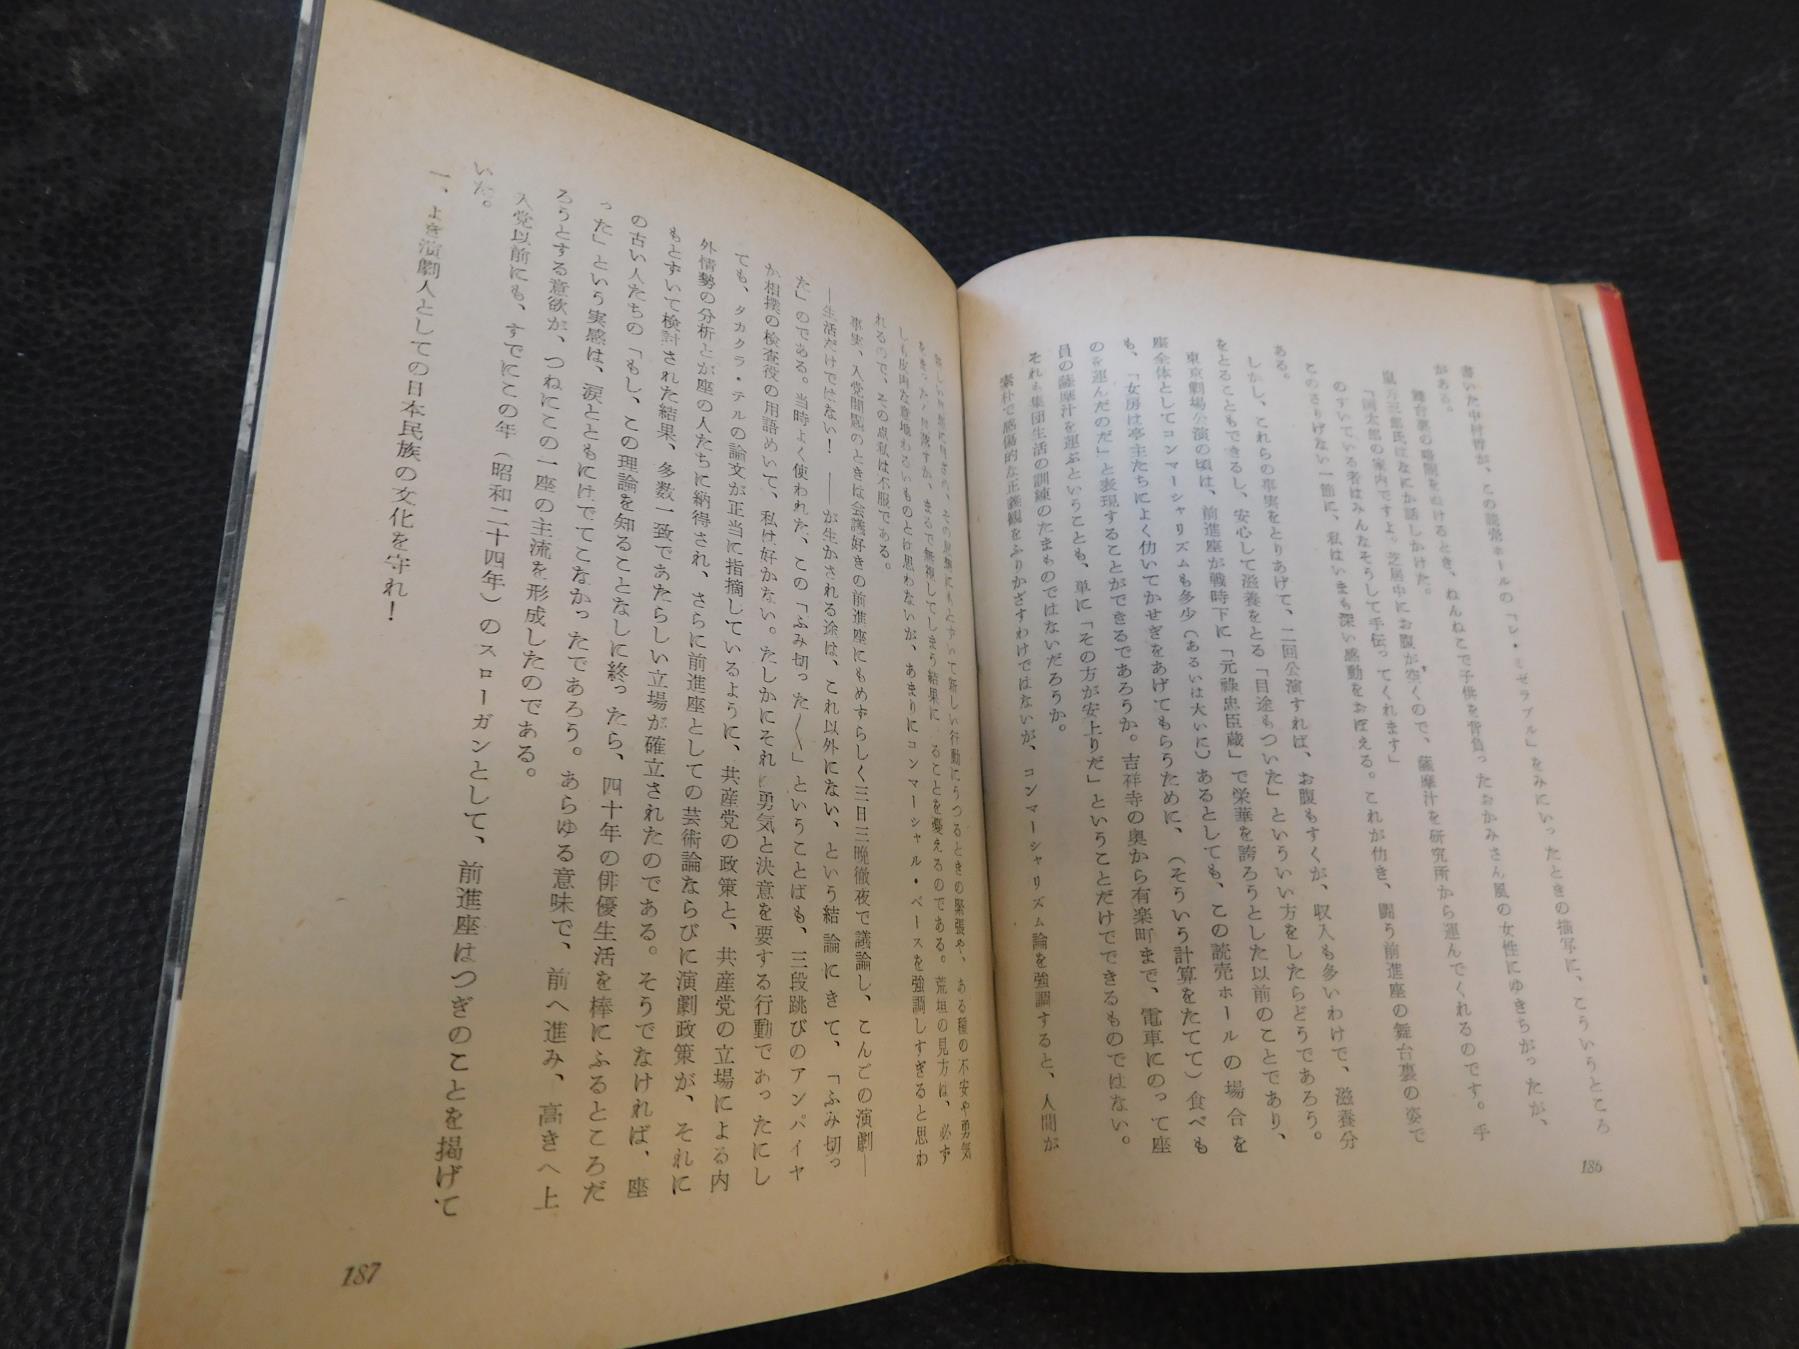 書いた中村哲が、この読売ホールの「レ・ミゼラブル」をみにいったときの描写に、こういうところ
がある。
舞台裏の暗闇をぬけるとき、ねんねこで子供を背負ったおかみさん風の女性にゆきちがったが、
嵐芳三郎氏はなにか話しかけた。
「国太郎の家内ですよ。芝居中にお腹が空くので、薩摩汁を研究所から運んでくれるのです。手
のすいている者はみんなそうして手伝ってくれます」
このさりげない一節に、私はいまも深い感動をおぼえる。これが仂き、闘う前進座の舞台裏の姿で
ある。
しかし、これらの事実をとりあげて、二回公演すれば、お腹もすくが、収入も多いわけで、滋養分
をとることもできるし、安心して滋養をとる「目途もついた」といういい方をしたらどうであろう。
東京劇場公演の頃は、前進座が戦時下に「元祿忠臣蔵」で栄華を誇ろうとした以前のことであり、
座全体としてコンマーシャリズムも多少(あるいは大いに)あるとしても、この読売ホールの場合を
も、「女房は亭主たちによく仂いてかせぎをあげてもらうために、(そういう計算をたてて)食べも
のを運んだのだ」と表現することができるであろうか。吉祥寺の奥から有楽町まで、電車にのって座
員の薩摩汁を運ぶということも、単に「その方が安上りだ」ということだけでできるものではない。
それも集団生活の訓練のたまものではないだろうか。
素朴で感傷的な正義観をふりかざすわけではないが、コンマーシャリズム論を強調すると、人間が
186
その見解にもとずいて新しい行動にうつるときの緊張や、ある種の不安や勇気
まるで無視してしまう結果に ることを憂えるのである。荒垣の見方は、必ず
しも皮肉な意地わるいものとは思わないが、あまりにコンマーシャル・ベースを強調しすぎると思わ
れるので、その点私は不服である。
事実、入党問題のときは会議好きの前進座にもめずらしく三日三晩徹夜で議論し、こんごの演劇―
―生活だけではない!――が生かされる途は、これ以外にない、という結論にきて、「ふみ切っ
た」のである。当時よく使われた、この「ふみ切った〱」ということばも、三段跳びのアンパイヤ
か相撲の検査役の用語めいて、私は好かない。たしかにそれは勇気と決意を要する行動であったにし
ても、タカクラ・テルの論文が正当に指摘しているように、共産党の政策と、共産党の立場による内
外情勢の分析とが座の人たちに納得され、さらに前進座としての芸術論ならびに演劇政策が、それに
もとずいて検討された結果、多数一致であたらしい立場が確立されたのである。そうでなければ、座
の古い人たちの「もし、この理論を知ることなしに終ったら、四十年の俳優生活を棒にふるところだ
った」という実感は、涙とともにけでてこなかったであろう。あらゆる意味で、前へ進み、高きへ上
ろうとする意欲が、つねにこの一座の主流を形成したのである。
入党以前にも、すでにこの年(昭和二十四年)のスローガンとして、前進座はつぎのことを掲げて
いた。
一、よき演劇人としての日本民族の文化を守れ!
187